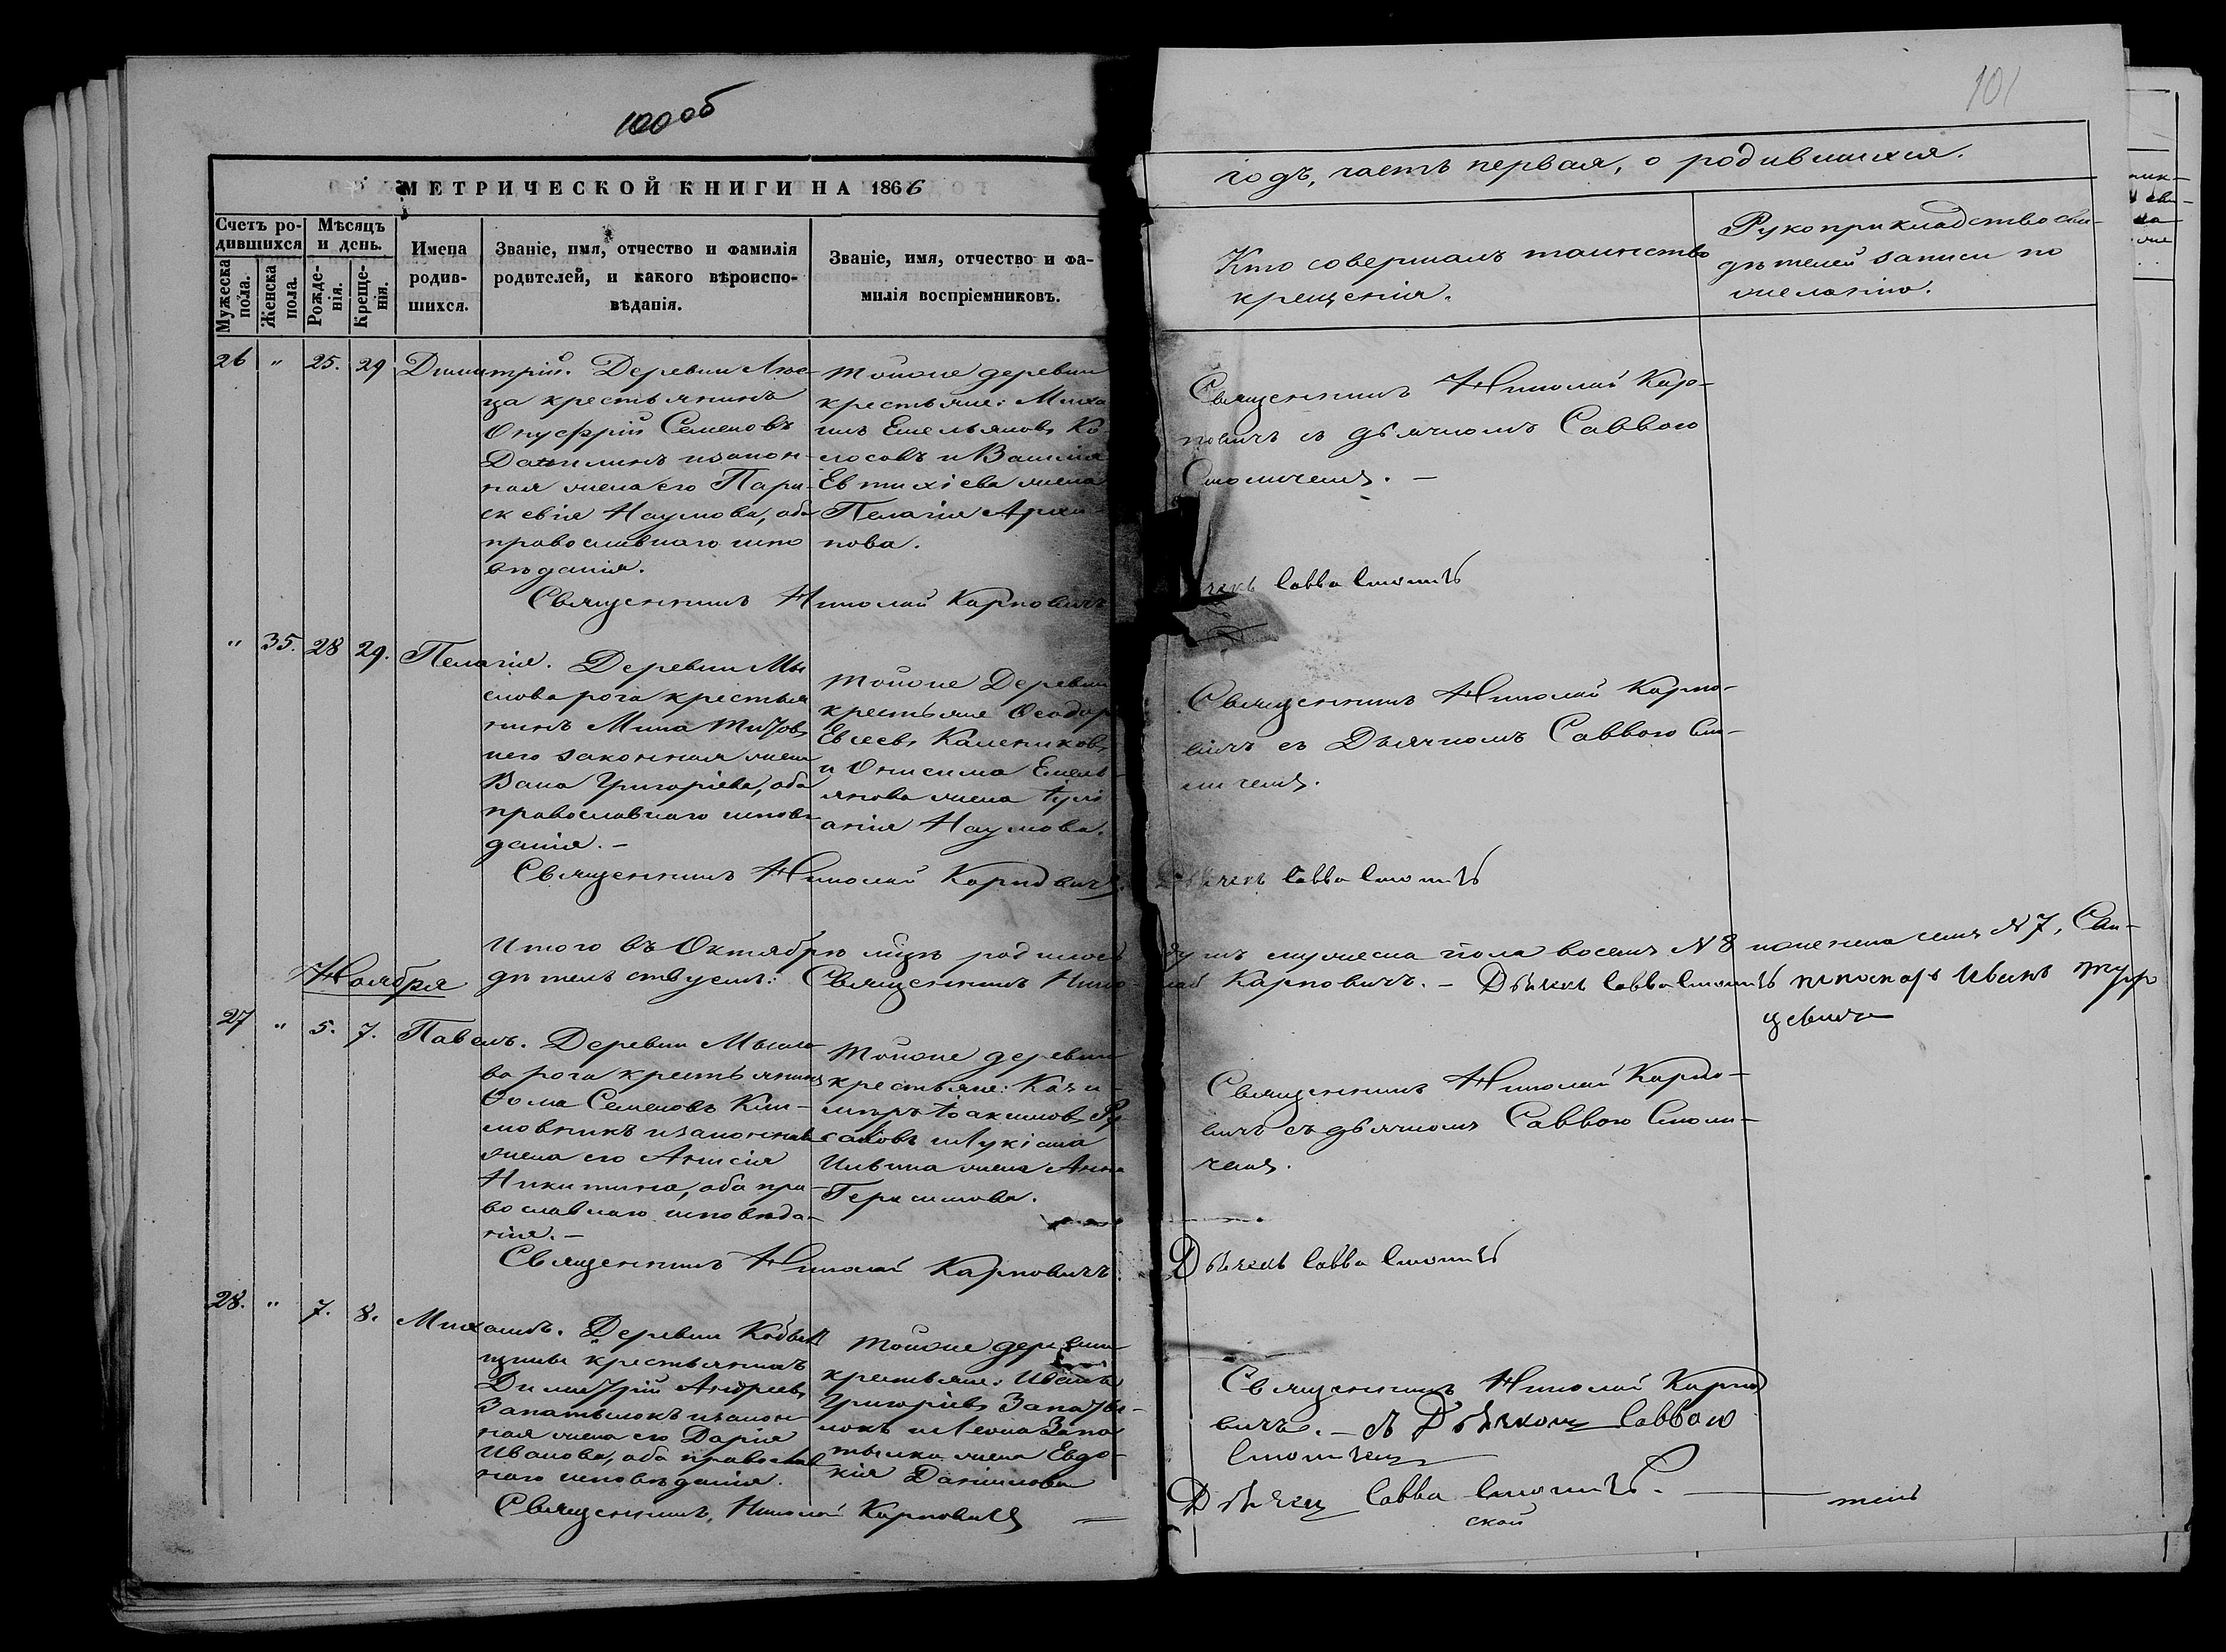 100 об
101
МЕТРИЧЕСКОЙ КНИГИ НА 1866
годъ, часть первая, о родившихся.
Счетъ ро-
дившихся
Мужеска
пола.
Женска
пола.
Мѣсяцъ
и день.
Рожде-
нія.
Креще-
нія.
Имена
родив-
шихся.
Званіе, имя, отчество и фамилія
родителей, и какого вѣроиспо-
вѣданія.
Званіе, имя, отчество и фа-
милія воспріемниковъ.
Кто совершалъ таинство
крещенія.
Рукоприкладство сви-
дѣтелей записи по
желанію.
26 " 25. 29 Димитрій. Деревни
ца крестьянинъ
Онуфрій Семеновъ
Данилинъ и закон-
ная жена его Пара-
скевія Наумова, оба
православнаго испо
вѣданія.
Тойже деревни
крестьяне: Миха
илъ Емельяновъ Ко
лосовъ и Василія
Евтихіева жена
Пелагія Архи
пова.
Священникъ Николай Карповичъ
Священникъ Николай Кар-
повичъ съ дьячкомъ Саввою
Смоличемъ. -
Савва Смоличъ
" 35. 28 29. Пелагія. Деревни Мы
слова рога крестья
нинъ Мина Титовъ
и его законная жена
Васа Григоріева, оба
православнаго исповѣ
данія. -
Тойже Деревни
крестьяне Ѳеодоръ
Евсеевъ Калениковъ
и Онисима Емель-
янова жена Іулі
анія Наумова.
Священникъ Николай Карповичъ.
Священникъ Николай Карпо-
вичъ съ Дьячкомъ Саввою Смо-
личемъ.
Дьячекъ Савва Смоличъ
Итого въ Октябрѣ мцѣ родилось мужеска пола восемь № 8 и женска семь № 7, Сви-
дѣтельствуемъ: Священникъ Николай Карповичъ. - Дьячекъ Савва Смоличъ пономарь Иванъ
Ноября
27 " 5. 7. Павелъ. Деревни Мысло
ва рога крестьянинъ
Ѳома Семеновъ Кли-
мовникъ и законная
жена его Анисія
Никитина, оба пра-
вославнаго исповѣда-
нія. -
Тойже деревни
крестьяне: Кази-
міръ Іоакимовъ Ру
саковъ и Лукіана
Ильина жена Анна
Герасимова.
Священникъ Николай Карповичъ.
Священникъ Николай Карпо-
вичъ съ дьячкомъ Саввою Смоли-
чемъ.
Дьячекъ Савва Смоличъ
28. " 7. 8. Михаилъ. Деревни Кобыль
щины крестьянинъ
Димитрій Андреевъ
Запатылокъ и закон
ная жена его Дарія
Иванова, оба православ
наго исповѣданія.
Тойже деревни
крестьяне: Иванъ
Григоріевъ Запаты-
локъ и Леона Запа
тылка жена Евдо-
кія Данилова
Священникъ, Николай Карповичъ
Священникъ Николай Карпо
вичъ. - съ Дьячкомъ Саввою
Смоличемъ
Дьячекъ Савва Смоличъ.
ской